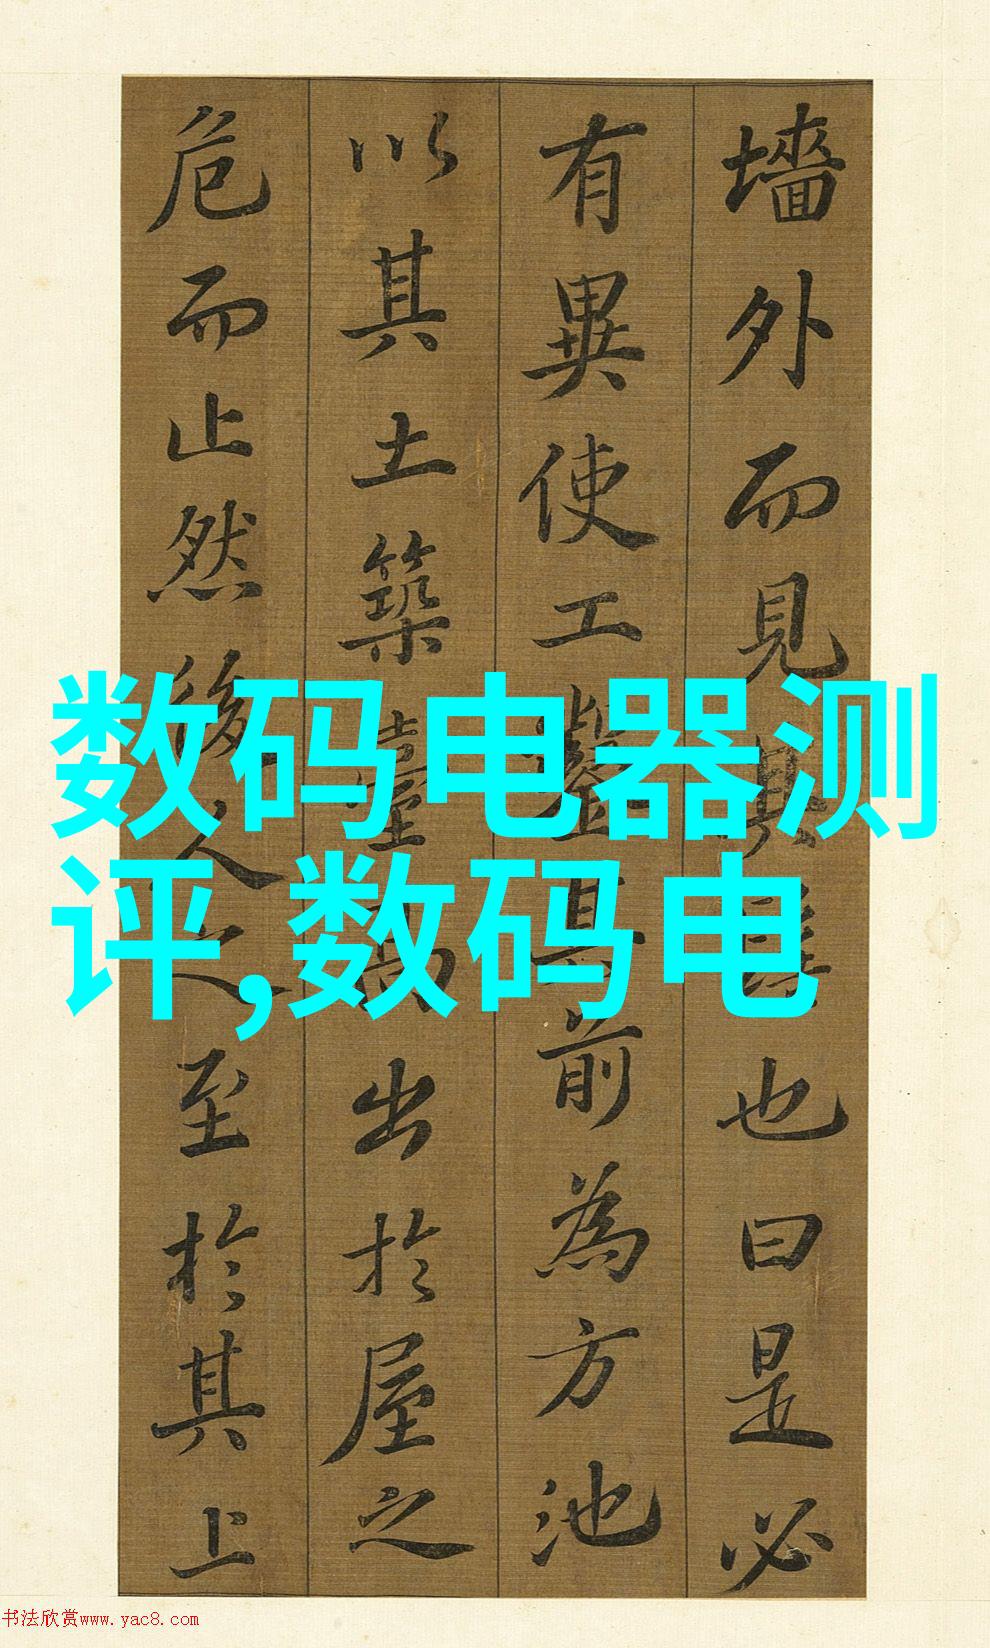 墻外而見其髻也曰是必
有異使工鑿其前為方池
以其土築臺高出於屋之
危而止然後人之至於其上
数码电器测
评,数码电
书法欣赏www.yac8.com